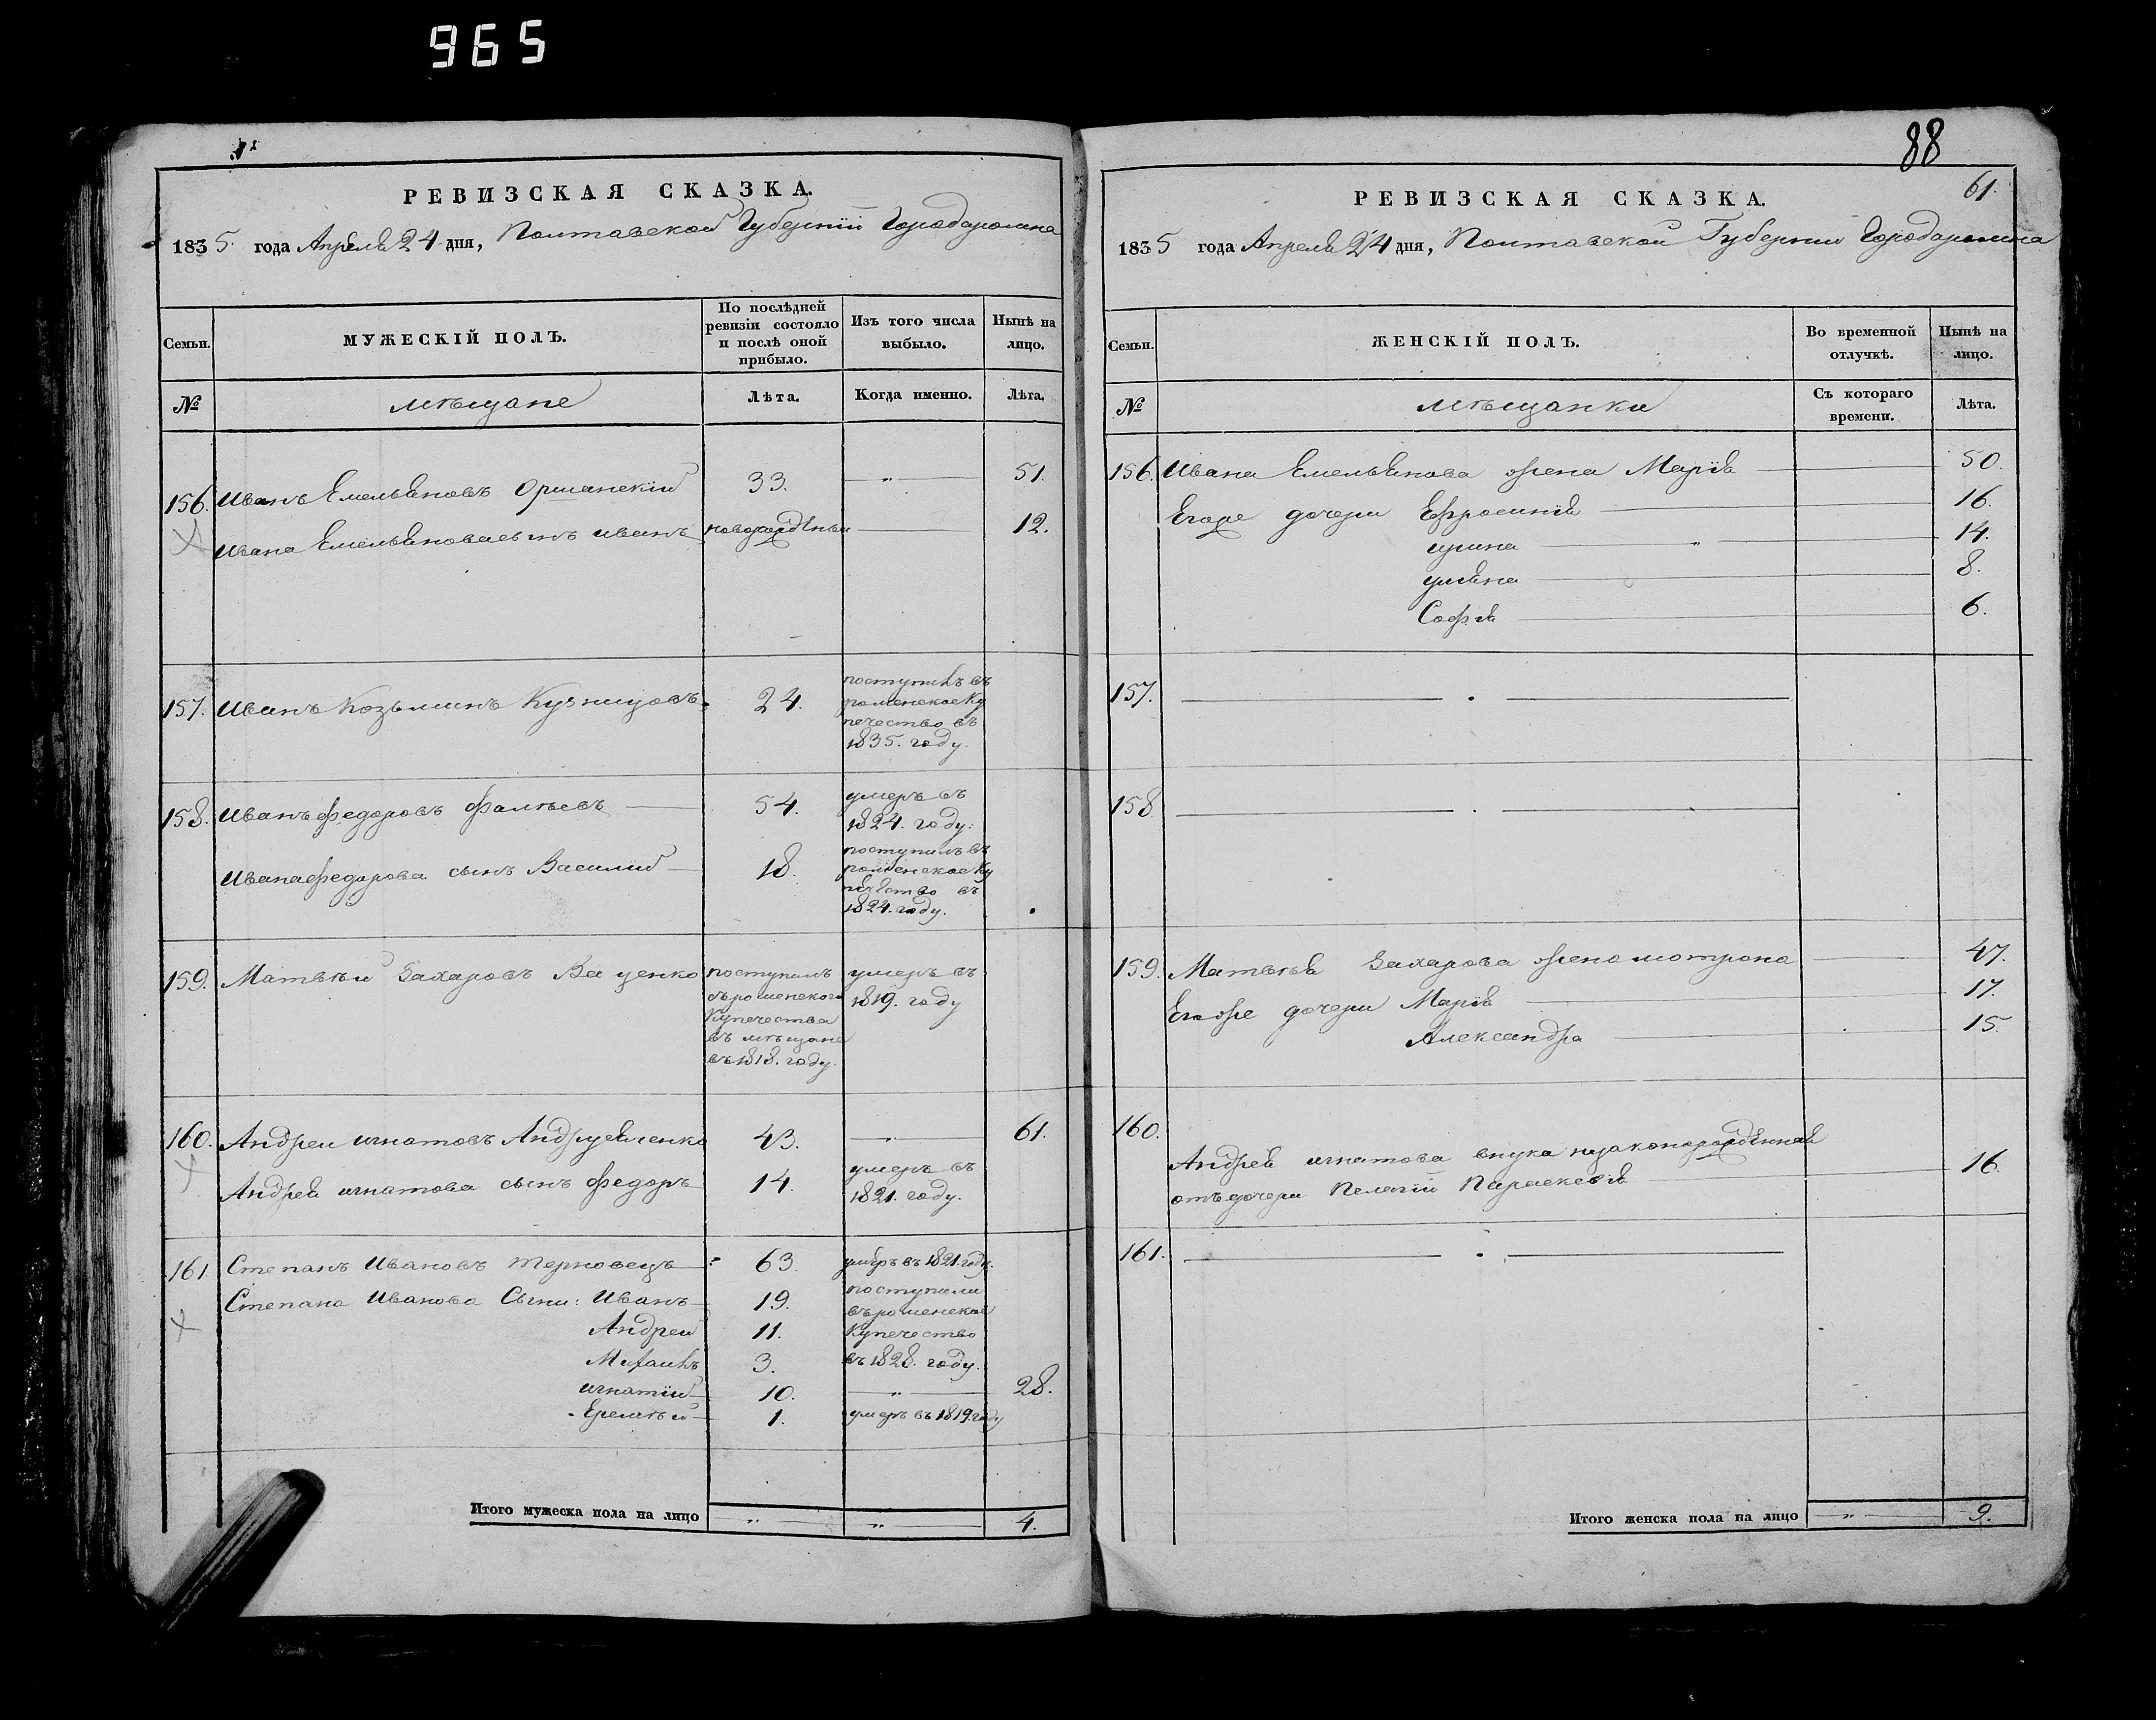 965
РЕВИЗСКАЯ СКАЗКА.
1835. года Апреля 24 дня, Полтавской Губернїи Города ромна
Семьи.
МУЖЕСКІЙ ПОЛЪ.
По послѣдней ревизіи состояло и послѣ оной прибыло.
Изъ того числа выбыло.
Нынѣ на лицо.
№
мѣщане
Лѣта.
Когда именно.
Лѣта.
156. Иванъ Емельяновъ Оршанскїй 33. 51.
Ивана Емельянова сынъ иванъ новорожденъи 12.
157. Иванъ Козьминъ Кузницовъ 24.
поступилъ въ
роменское Ку
печество въ
1835. году.
158. Иванъ федоровъ Фалѣевъ 54.
умеръ въ
1824. году.
Ивана федорова сынъ Василий 18.
поступилъ въ
роменское Ку
печество въ
1824. году.
159. Матвѣй Захаровъ Ваценко
поступилъ
съ роменского
Купечества
въ мѣщане
въ 1818. году.
умеръ въ
1819. году
160. Андреи игнатовъ 43. 61.
Андрея игнатова сынъ федоръ 14.
умеръ въ
1821. году.
161 Степанъ Ивановъ терновецъ 63. умеръ въ 1821. году.
Степана Иванова Сыни: Иванъ 19.
Андреи 11.
Михаилъ 3.
поступили
въ роменское
Купечество
въ 1828. году.
игнатїй 10. 28.
Еремѣй 1. умеръ въ 1819. году
Итого мужеска пола на лицо 4.
88
61.
РЕВИЗСКАЯ СКАЗКА.
1835 года Апреля 24 дня, Полтавской Губернии Города ромна
Семьи.
ЖЕНСКІЙ ПОЛЪ.
Во временной отлучкѣ.
Нынѣ на лицо.
№
мѣщанки
Съ котораго времени.
Лѣта.
156. Ивана Емельянова жена Марїя 50.
Егоже дочери Ефросинїя 16.
ирина 14.
улияна 8.
София 6.
157.
158
159. Матвѣя Захарова жена мотрона 47.
Егоже дочери Марїя 17.
Александра 15.
160.
Андрея игнатова внука незаконорожденная
отъ дочери Пелагїи Параскевїя 16.
161.
Итого женска пола на лицо 9.